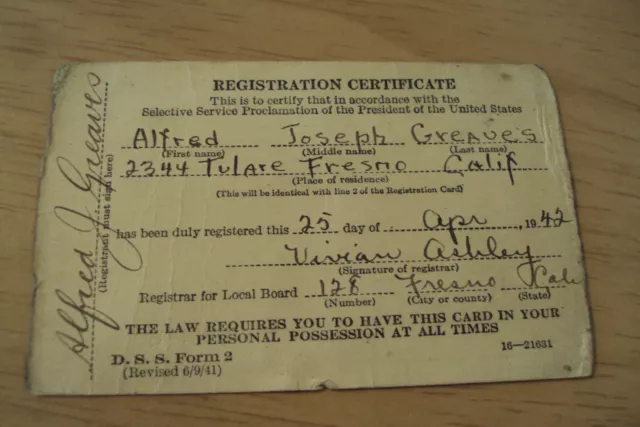 REGISTRATION CERTIFICATE
This is to certify that in accordance with the
Selective Service Proclamation of the President of the United States
Alfred Joseph Greaves
(First name) (Middle name) (Last name)
2344 Tulare Fresno Calif
(Place of residence)
(This will be identical with line 2 of the Registration Card)
has been duly registered this 25 day of Apr, 1942
Vivian Ashley
(Signature of registrar)
Registrar for Local Board 128 Fresno Cal
(Number) (City or county) (State)
THE LAW REQUIRES YOU TO HAVE THIS CARD IN YOUR
PERSONAL POSSESSION AT ALL TIMES
D. S. S. Form 2
(Revised 6/9/41)
16—21631
Alfred J Greaves
(Registrant must sign here)